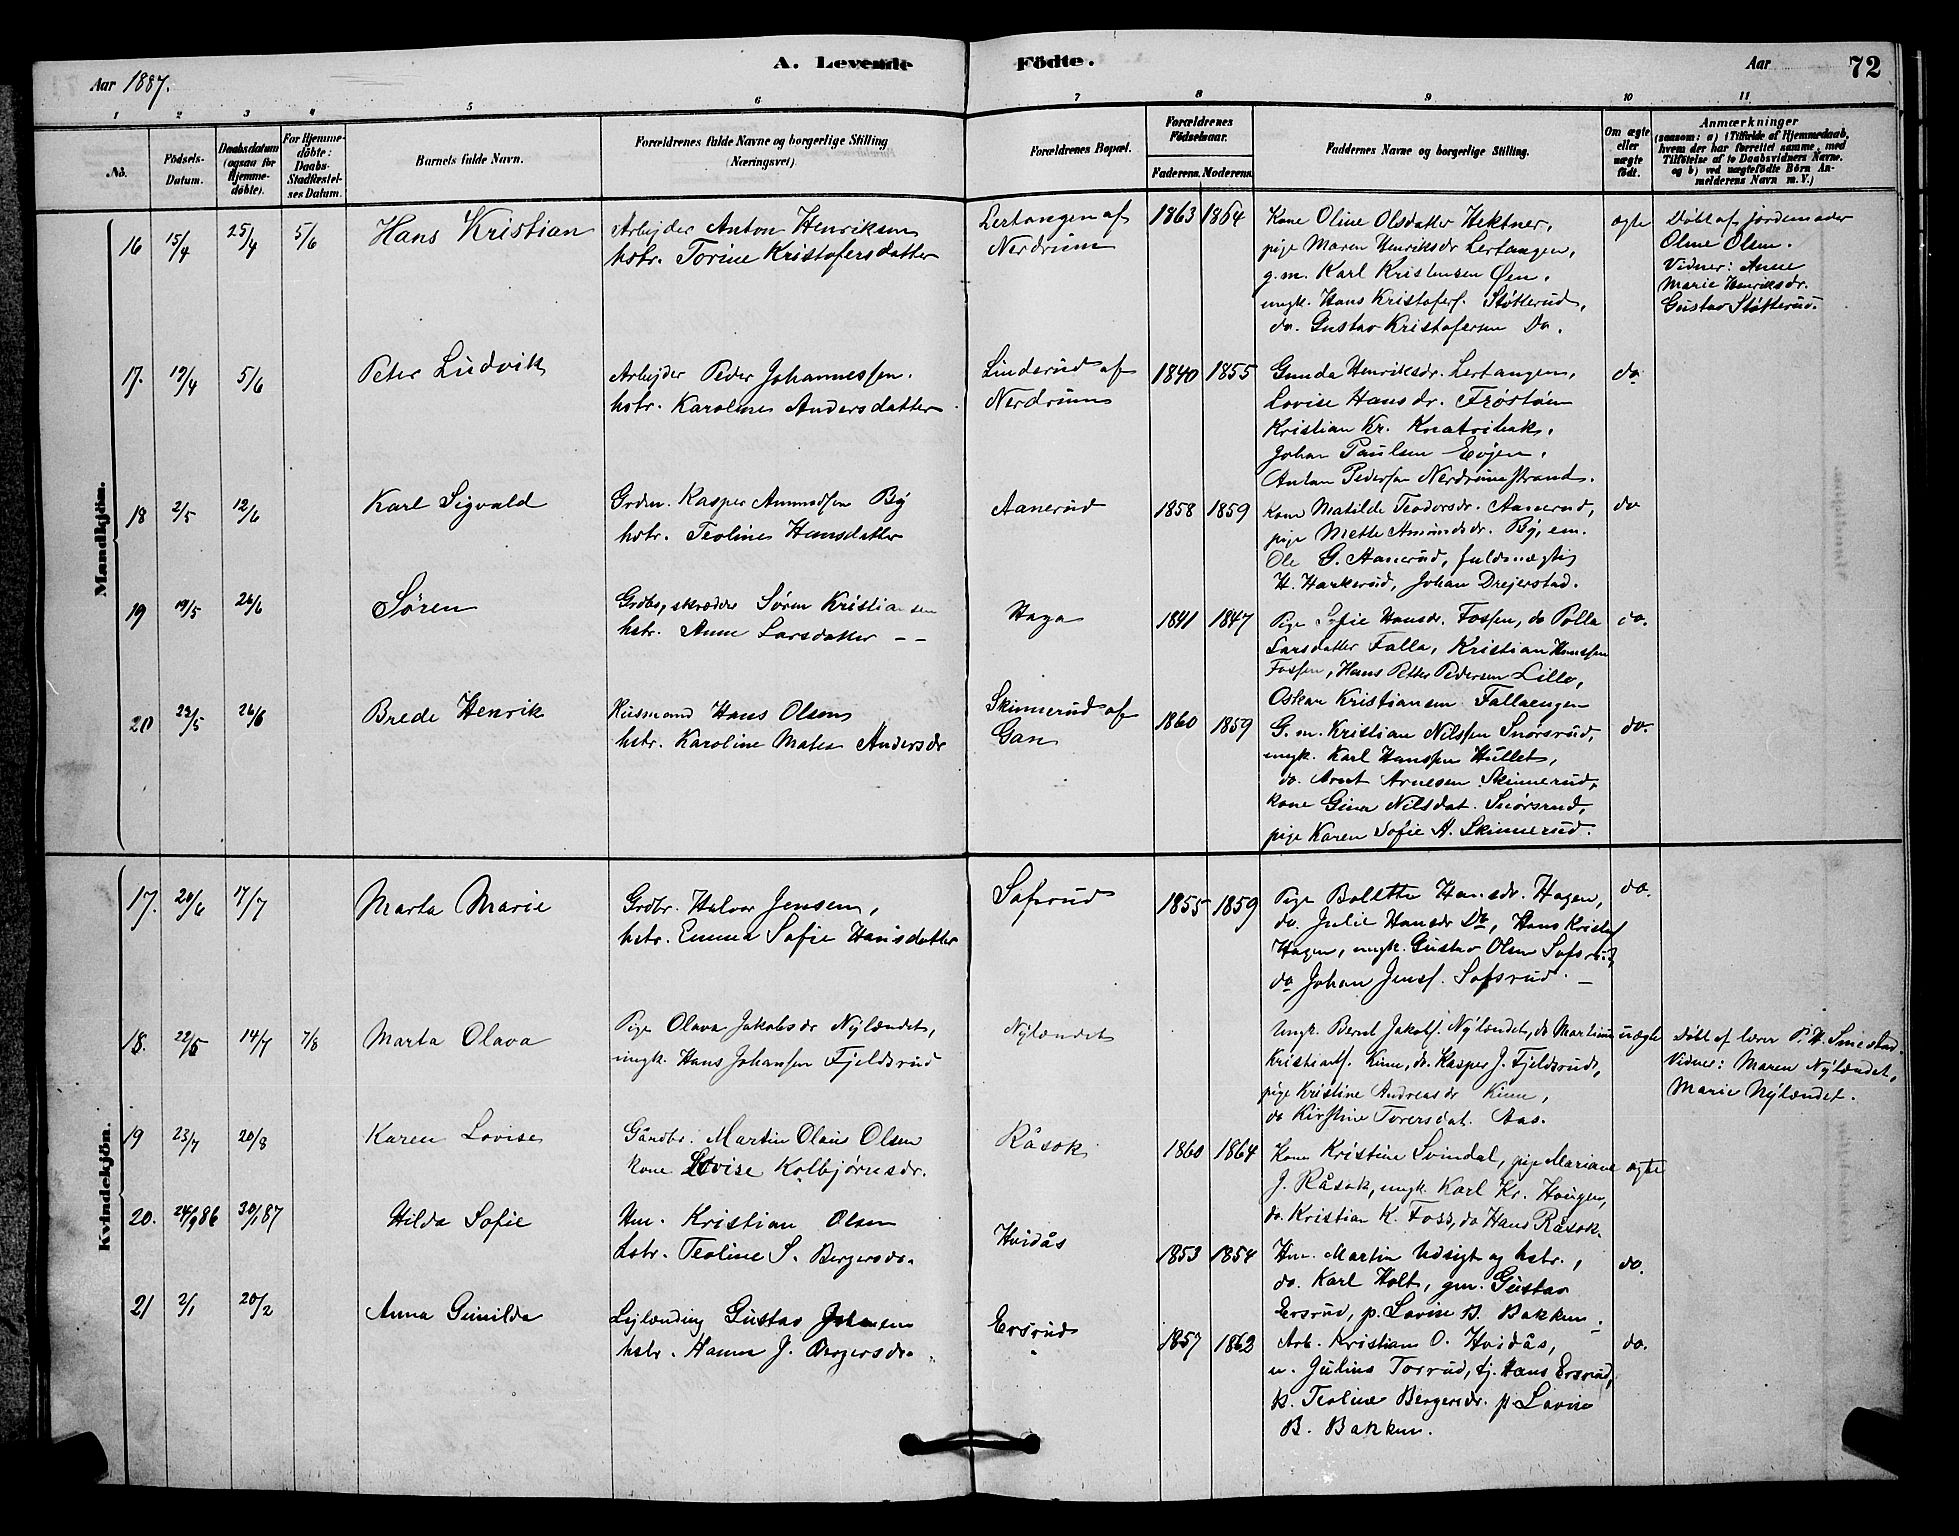 A. Levende Födte.
Aar 1887.
Aar
72
1 2 3 4 5 6 7 8 9 10 11
No.
Födsels-Datum.
Daabsdatum (ogsaa for Hjemme-döbte).
For Hjemme-döbte: Daabs-Stadfæstel-ses Datum.
Barnets fulde Navn.
Forældrenes fulde Navne og borgerlige Stilling (Næringsvei).
Forældrenes Bopæl.
Forældrenes Födselsaar.
Faderens. Moderens.
Faddernes Navne og borgerlige Stilling.
Om ægte eller uægte födt.
Anmærkninger
(saasom: a) i Tilfælde af Hjemmedaab, hvem der har forrettet samme, med Tilföielse af to Daabsvidners Navne, og b) ved uægtefödte Börn An-melderens Navn m. V.)
Mandkjön.
16 15/4 25/4 5/6 Hans Kristian
Arbejder Anton Henriksen
hstr. Torine Kristofersdatter
Lertangen af
Nerdrum
1863 1864
Kone Oline Olsdatter Hektner,
pige Maren Henriksdr Lertangen,
g.m. Karl Kristensen Øen,
ungk. Hans Kristofers. Støtterud,
do. Gustav Kristofersen Do.
ægte
Døbt af jordemoder
Oline Olsen.
Vidner: Anne
Marie Henriksdr.
Gustav Støtterud.
17. 19/4 5/6 Peter Ludvik
Arbejder Peder Johannessen.
hstr. Karoline Andersdatter
Linderud af
Nerdrum
1840 1855
Gunda Henriksdr. Lertangen,
Lovise Hansdr. Frøstøen
Kristian Kr. Knatvihak.
Johan Paulsen Evjen.
Anton Pedersen Nerdrumstrand.
do
18 2/5 12/6 Karl Sigvald
Grdm. Kasper Amundsen By
hstr. Teoline Hansdatter
Aanerud
1858 1859
Kone Matilde Teodorsdr. Aanerud,
pige Mette Amundsdr. By, em.
Ole G. Aanerud, fuldmægtig
H. Harkerud, Johan Drejerstad.
do
19 19/5 26/6 Søren
Grdbr, skræder Søren Kristiansen
hstr. Anne Larsdatter - -
Haga
1841 1847
Pige Sofie Hansdr. Fossen, do Pølla
Larsdatter Falla, Kristian Hanssen
Fossen, Hans Petter Pedersen Lillo,
Oskar Kristiansen Fallaengen
do.
20 23/5 26/6 Brede Henrik
Husmand Hans Olsen
hstr. Karoline Matea Andersdr
Skinnerud af
Gan
1860 1859
G. m. Kristian Nilssen Snørsrud,
ungk. Karl Hanssen Hullet,
do. Arnt Arnesen Skinnerud,
kone Gina Nilsdat. Snørsrud,
pige Karen Sofie A. Skinnerud.
do.
Kvindekjön.
17. 20/6 17/7 Marta Marie
Grdbr. Halvor Jensen,
hstr. Emma Sofie Hansdatter
Sofsrud
1855 1859
Pige Bolette Hansdr. Hagen,
do. Julie Hansdr Do, Hans Kristof
Hagen, ungk. Gustav Olsen Sofsrud,
do Johan Jens. Sofsrud. -
do.
18. 22/5 14/7 7/8 Marta Olava
Pige Olava Jakobsdr Nylændet,
ungk. Hans Johansen Fjeldsrud
Nylændet
Ungk. Bernt Jakobs. Nylændet, do Martinus
Kristians. Kinn, do. Kasper J. Fjeldsrud,
pige Kristine Andreasdr Kinn,
do Kirstine Toversdat. Aas.
uægte
Døbt af lærer P. H. Smestad.
Vidner: Maren Nylændet,
Marie Nylændet.
19 23/7 20/8 Karen Lovise
Gårdbr. Martin Olaus Olsen
kone Lovise Kolbjørnsdr.
Råsok
1860 1864
Kone Kristine Svindal, pige Mariane
J. Råsok, ungk. Karl Kr. Haugen,
do. Kristian K. Foss, do Hans Råsok.
ægte
20. 24/9 86 30/1 87 Hilda Sofie
Hm. Kristian Olsen
hstr. Teoline S. Bergersdr.
Hvidås
1853 1854
Hm. Martin Udsigt og hstr.,
do. Karl Holt, gm. Gustav
Ersrud, p. Lovise B. Bakken.
do.
21 2/1 20/2 Anna Gunilda
Lejlænding Gustav Johansen
hstr. Hanna J. Bergersdr.
Ersrud
1857 1862
Arb. Kristian O. Hvidås,
u. Julius Torrud, tj. Hans Ersrud,
k. Teoline Bergersdr. p Lovise
B. Bakken.
do.